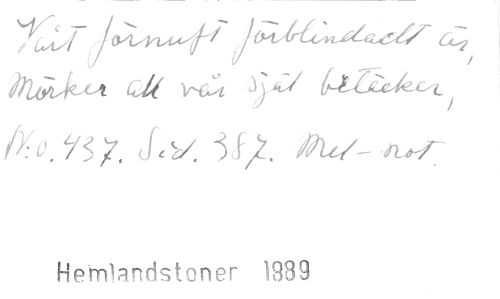 Vårt förnuft förblindadt är,
Mörker all vår själ betäcker,
N:o. 437. Sid. 387. Mel-not.
Hemlandstoner 1889